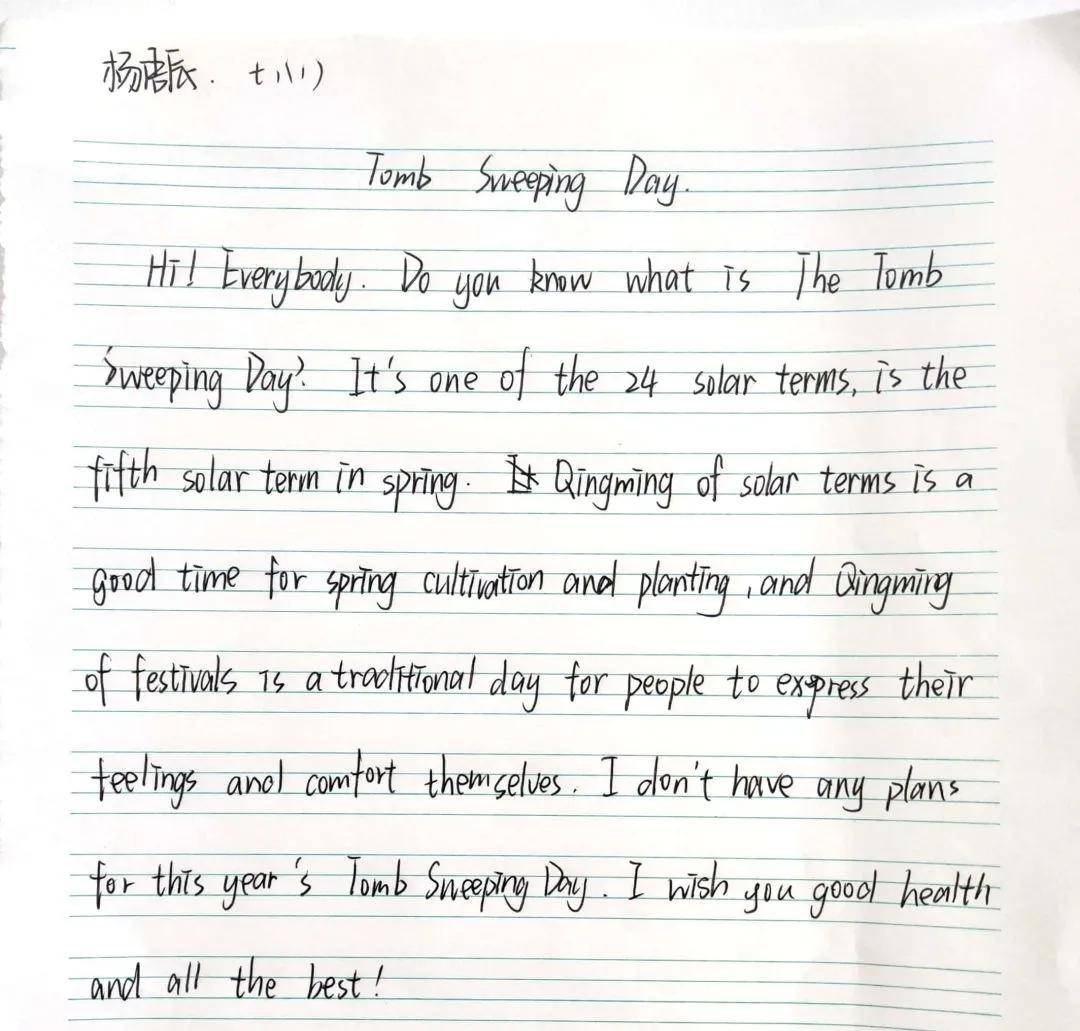 杨唐辰. 七(1)
Tomb Sweeping Day.
Hi! Everybody. Do you know what is The Tomb
Sweeping Day? It's one of the 24 solar terms, is the
fifth solar term in spring. Qingming of solar terms is a
good time for spring cultivation and planting, and Qingming
of festivals is a traditional day for people to express their
feelings and comfort themselves. I don't have any plans
for this year's Tomb Sweeping Day. I wish you good health
and all the best!